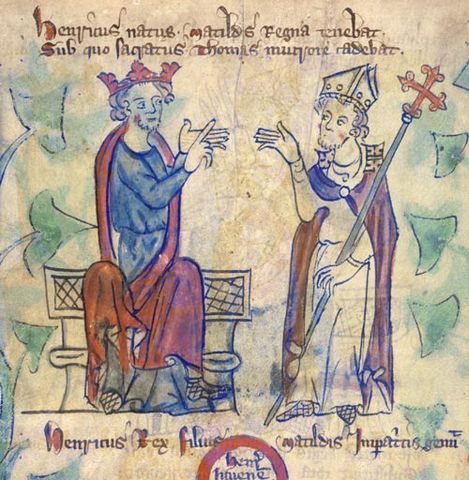 Henricus natus. Matildis Regna tenebat.
Sub quo sacratus Thomas mucrone cadebat.
Henricus Rex filius Matildis